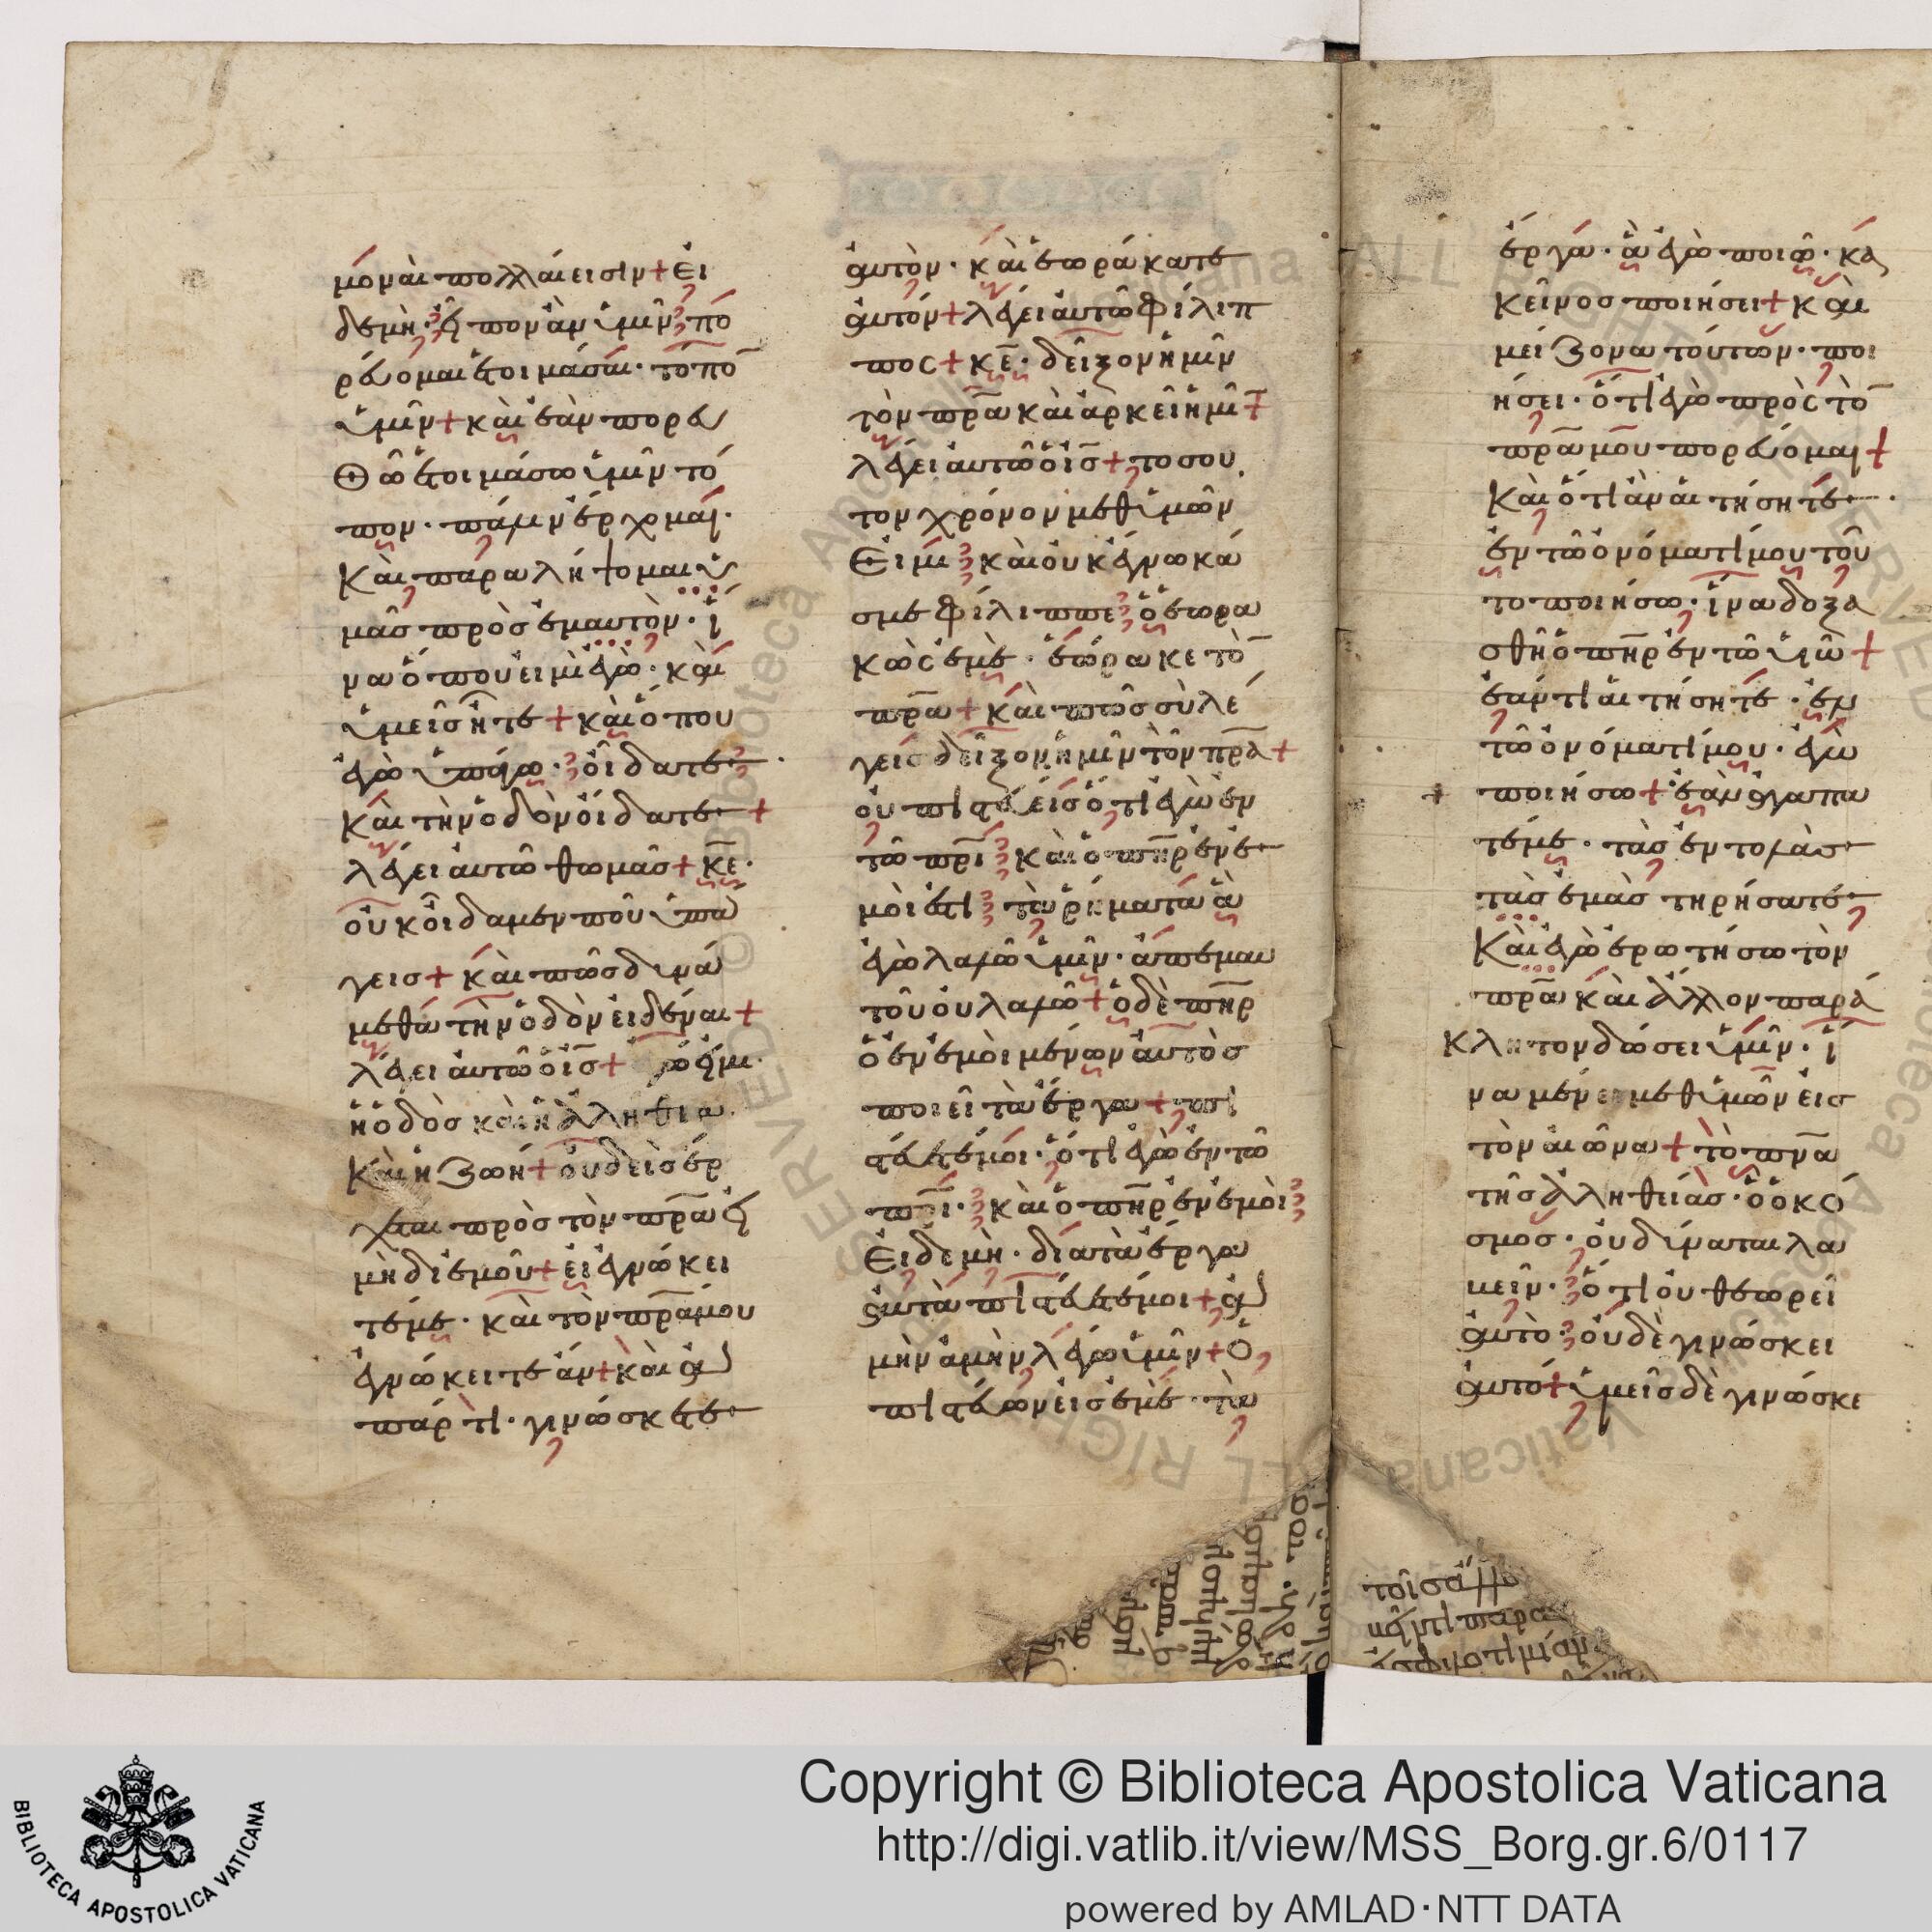 μοναὶ πολλαί εἰσιν + εἰ
δὲ μὴ· εἶπον ἂν ὑμῖν· πο
ρεύομαι ἑτοιμάσαι· τόπο̅
ὑμῖν + καὶ ἐὰν πορευ
θῶ ἑτοιμάσω ὑμῖν τό
πον· πάλιν ἔρχομαι·
καὶ παραλήψομαι ὑ
μᾶσ πρὸσ ἐμαυτὸν· ἵ
να ὅπου εἰμὶ ἐγὼ· καὶ
ὑμεῖσ ἦτε + καὶ ὅπου
ἐγὼ ὑπάγω· οἴδατε·
καὶ τὴν ὁδὸν οἴδατε +
λέγει αὐτῶ θωμᾶσ + κ̅ε̅·
οὐκ οἴδαμεν ποῦ ὑπά
γεισ + καὶ πῶσ δυνά
μεθα τὴν ὁδὸν εἰδέναι +
λέγει αὐτῶ ὁ ι̅σ̅ + ἐγώ εἰμι·
ἡ ὁδὸσ καὶ ἡ ἀλήθεια
καὶ ἡ ζωή + οὐδεὶσ ἔρ
χεται πρὸσ τὸν π̅ρ̅α̅ εἰ
μὴ δι' ἐμοῦ + εἰ ἐγνώκει
τέ με· καὶ τὸν π̅ρ̅α̅ μου
ἐγνώκειτε ἄν + καὶ ἀ
πάρτι· γινώσκετε
αὐτὸν· καὶ ἑωράκατε
αὐτόν + λέγει αὐτῶ φίλιπ
πος + κ̅ε̅· δεῖξον ἡμῖν
τὸν π̅ρ̅α̅ καὶ ἀρκεῖ ἡμῖ̅ +
λέγει αὐτῶ ὁ ι̅σ̅ + τοσοῦ
τον χρόνον μεθ' ὑμῶν
εἰμι· καὶ οὐκ ἔγνωκά
σ με φίλιππε· ὁ ἑωρα
κὼς ἐμὲ· ἑώρακε τὸ̅
π̅ρ̅α̅ + καὶ πῶσ σὺ λέ
γεις δεῖξον ἡμῖν τὸν π̅ρ̅α̅ +
οὐ πιστεύεισ ὅτι ἐγὼ ἐν
τῶ π̅ρ̅ι̅· καὶ ὁ π̅η̅ρ̅ ἐν ἐ
μοί ἐστι· τὰ ῥήματα ἃ
ἐγὼ λαλῶ ὑμῖν· ἀπ' ἐμαυ
τοῦ οὐ λαλῶ + ὁ δὲ π̅η̅ρ̅
ὁ ἐν ἐμοὶ μένων αὐτὸσ
ποιεῖ τὰ ἔργα + πι
στεύετέ μοι· ὅτι ἐγὼ ἐν τῶ
π̅ρ̅ι̅· καὶ ὁ π̅η̅ρ̅ ἐν ἐμοὶ·
εἰ δὲ μὴ· διὰ τὰ ἔργα
αὐτὰ πιστεύετέ μοι + ἀ
μὴν ἀμὴν λέγω ὑμῖν + ὁ
πιστεύων εἰσ ἐμὲ· τὰ
ἔργα· ἃ ἐγὼ ποιῶ· κα
κεῖνοσ ποιήσει + καὶ
μείζονα τούτων· ποι
ήσει· ὅτι ἐγὼ πρὸς τὸ̅
π̅ρ̅α̅ μου πορεύομαι +
καὶ ὅτι ἂν αἰτήσητε·
ἐν τῶ ὀνόματί μου τοῦ
το ποιήσω· ἵνα δοξα
σθῆ ὁ π̅η̅ρ̅ ἐν τῶ υἱῶ +
ἐάν τι αἰτήσητε· ἐν
τῶ ὀνόματί μου· ἐγὼ
ποιήσω + ἐὰν ἀγαπᾶ
τέ με· τὰσ ἐντολὰσ
τὰσ ἐμὰσ τηρήσατε·
καὶ ἐγὼ ἐρωτήσω τὸν
π̅ρ̅α̅ καὶ ἄλλον παρά
κλητον δώσει ὑμῖν· ἵ
να μένει μεθ' ὑμῶν εἰσ
τὸν αἰῶνα + τὸ π̅ν̅α̅
τῆσ ἀληθείασ· ὃ ὁ κό
σμοσ· οὐ δύναται λα
βεῖν· ὅτι οὐ θεωρεῖ
αὐτὸ· οὐδὲ γινώσκει
αὐτό + ὑμεῖσ δὲ γινώσκε
τοῖσ
Copyright © Biblioteca Apostolica Vaticana
http://digi.vatlib.it/view/MSS_Borg.gr.6/0117
powered by AMLAD·NTT DATA
BIBLIOTECA APOSTOLICA VATICANA